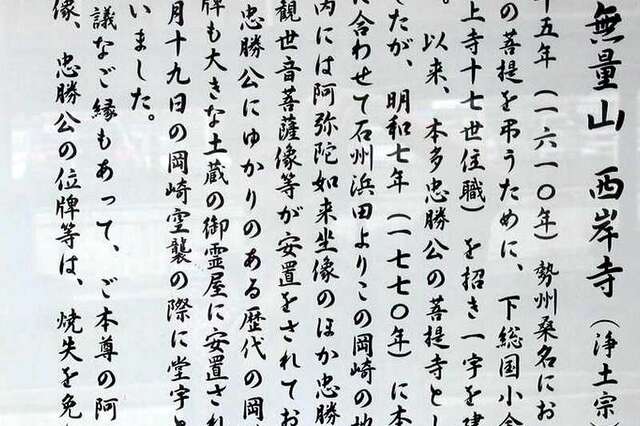 無量山 西岸寺（浄土宗）
十五年（一六一〇年）勢州桑名にお
の菩提を弔うために、下総国小金
上寺十七世住職）を招き一宇を建
。以来、本多忠勝公の菩提寺とし
したが、明和七年（一七七〇年）に本
に合わせて石州浜田よりこの岡崎の地
内には阿弥陀如来坐像のほか忠勝
観世音菩薩像等が安置をされてお
忠勝公にゆかりのある歴代の岡
牌も大きな土蔵の御霊屋に安置され
月十九日の岡崎空襲の際に堂宇と
いました。
議なご縁もあって、ご本尊の阿
像、忠勝公の位牌等は、焼失を免